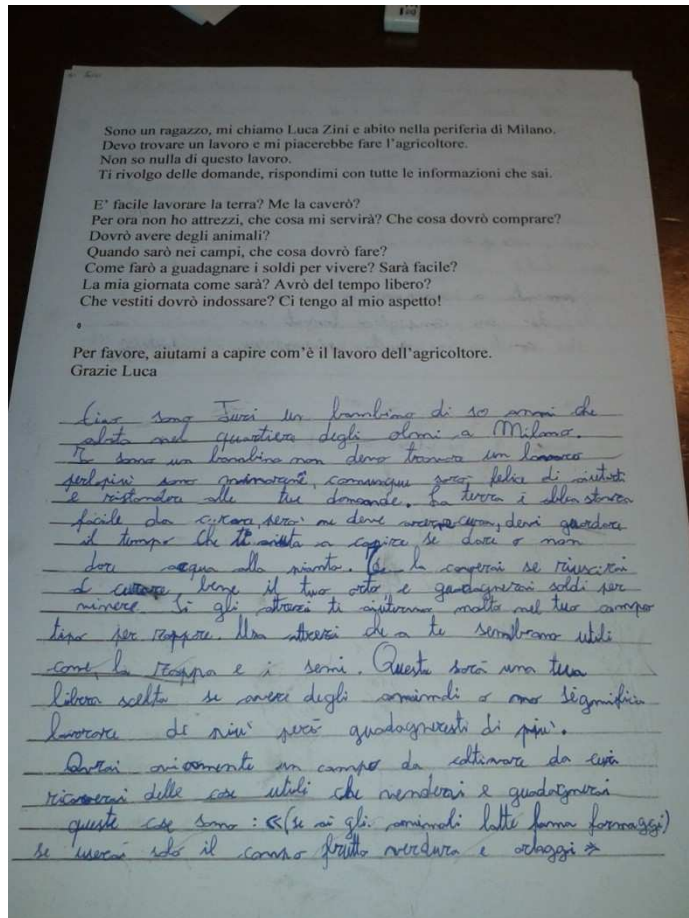 Sono un ragazzo, mi chiamo Luca Zini e abito nella periferia di Milano.
Devo trovare un lavoro e mi piacerebbe fare l'agricoltore.
Non so nulla di questo lavoro.
Ti rivolgo delle domande, rispondimi con tutte le informazioni che sai.
E' facile lavorare la terra? Me la caverò?
Per ora non ho attrezzi, che cosa mi servirà? Che cosa dovrò comprare?
Dovrò avere degli animali?
Quando sarò nei campi, che cosa dovrò fare?
Come farò a guadagnare i soldi per vivere? Sarà facile?
La mia giornata come sarà? Avrò del tempo libero?
Che vestiti dovrò indossare? Ci tengo al mio aspetto!
Per favore, aiutami a capire com'è il lavoro dell'agricoltore.
Grazie Luca
Ciao sono Juri un bambino di 10 anni che
abita nel quartiere degli olmi a Milano.
sono un bambino non devo trovare un
sono comunque sono felice di aiutarti
e rispondere alle tue domande. La terra è abbastanza
facile da curare, però ne devi avere cura, devi guardare
il tempo che ti aiuta a capire se dare o non
dare acqua alla pianta. la se riuscirai
a curare bene il tuo orto e guadagnerai soldi per
vivere. Si gli attrezi ti aiuteranno molto nel tuo campo
tipo per zappare. Usa attrezi che a te sembrano utili
come, la zappa e i semi. Questa sarà una tua
libera scelta se avere degli animali o no significa
lavorare di più però guadagneresti di più.
Avrai un campo da coltivare da cui
ricaverai delle cose utili che venderai e guadagnerai
queste cose sono: «(se ai gli animali latte formaggi)
se userai solo il campo frutta verdura e ortaggi»